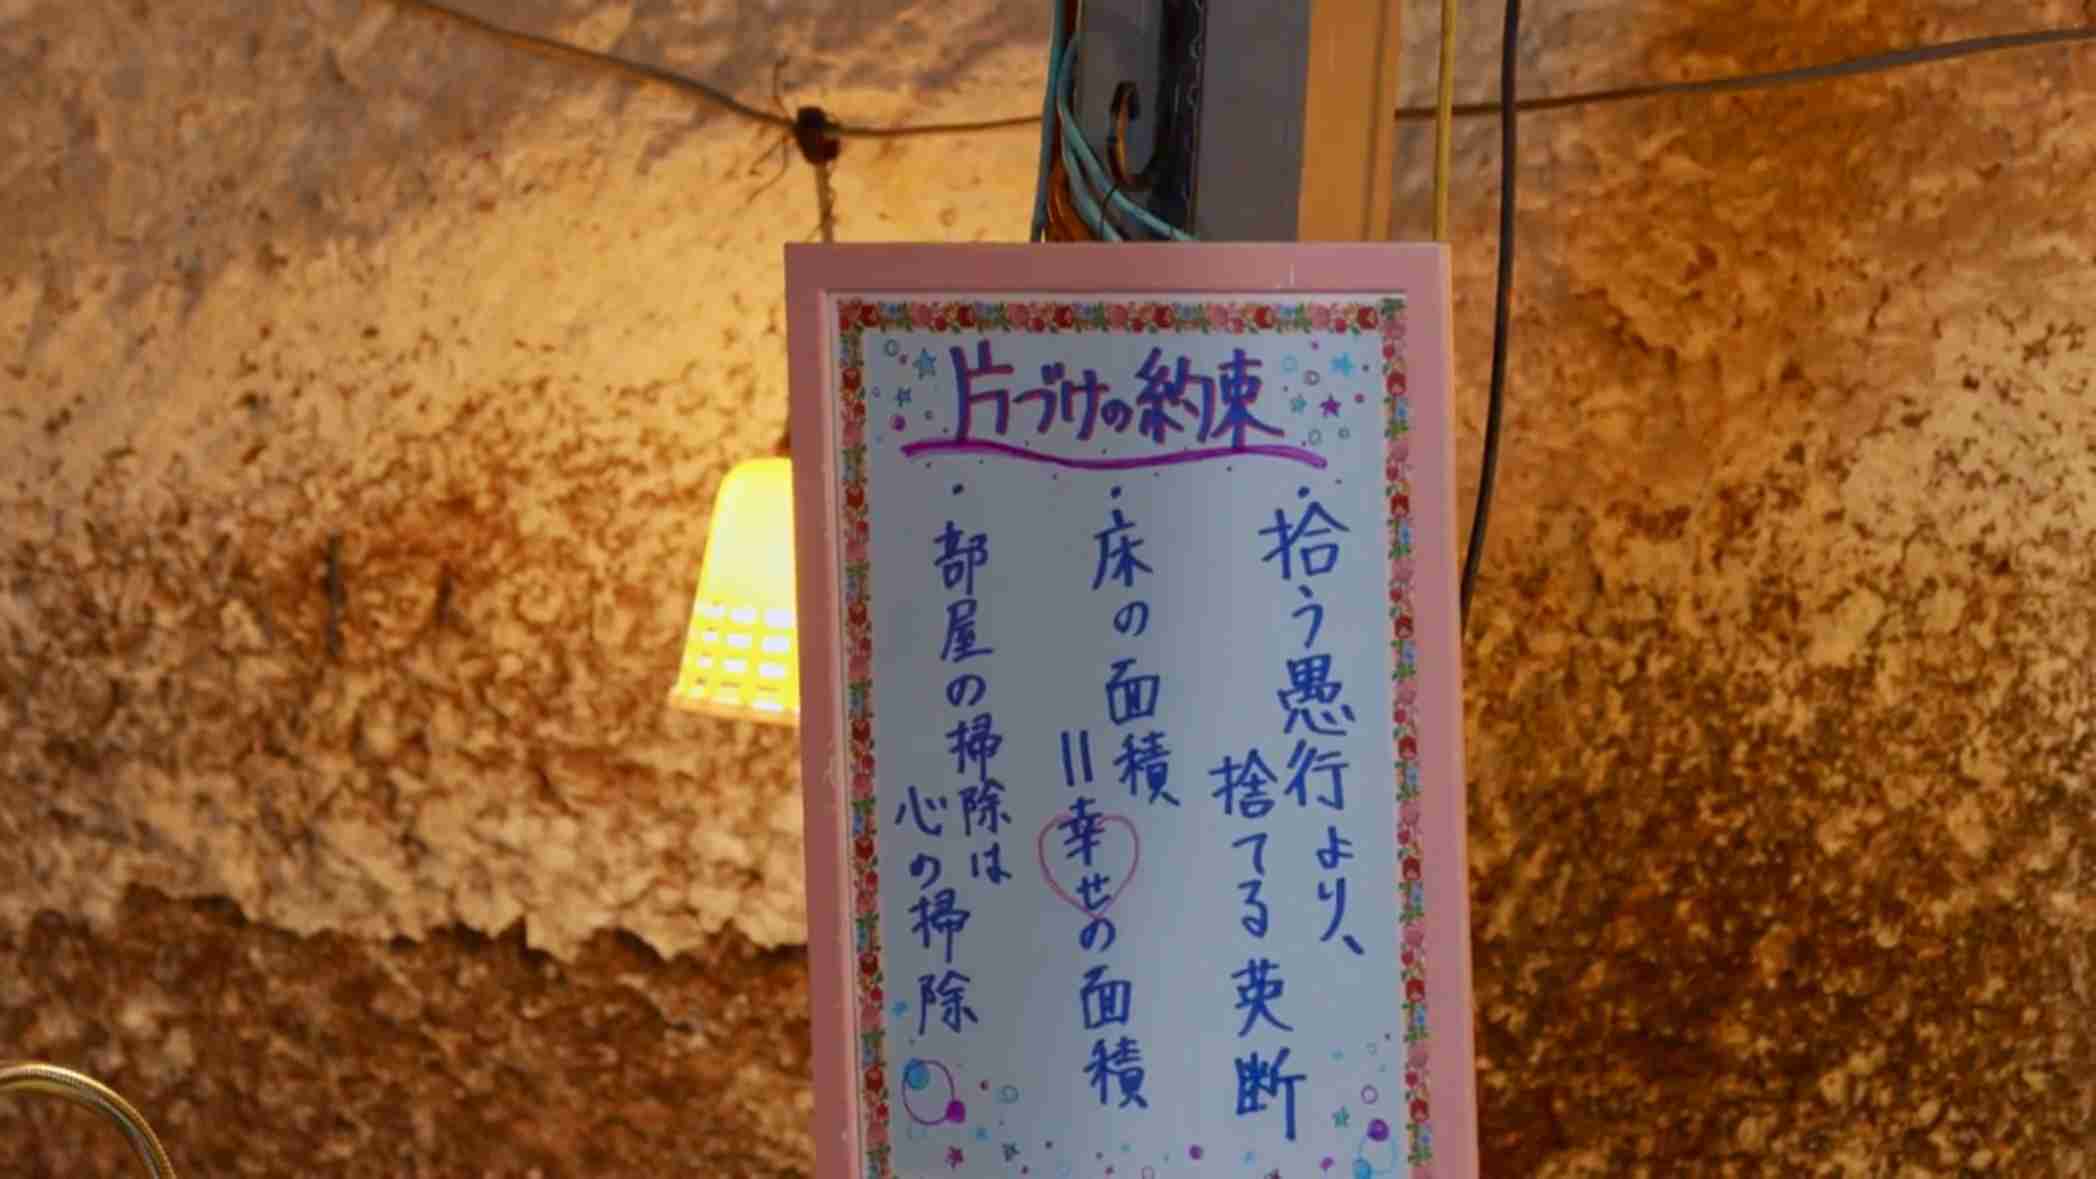 片づけの約束
・拾う愚行より、
捨てる英断
・床の面積
＝幸せの面積
・部屋の掃除は
心の掃除